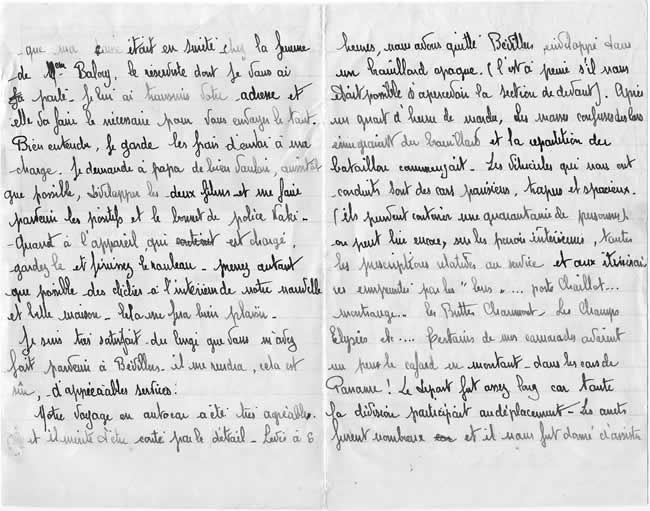 que ma étant en sureté chez la femme
de Balory, le réserviste dont je vous ai
parlé. Je lui ai transmis votre adresse et
elle va faire le nécessaire pour vous envoyer le tout.
Bien entendu, je garde les frais d'envoi à ma
charge. Je demande à papa de bien vouloir, aussitôt
que possible, développer les deux films et me faire
parvenir les positifs et le bonnet de police kaki -
- Quand à l'appareil qui est chargé,
gardez le et finissez le rouleau - prenez autant
que possible des clichés à l'intérieur de notre nouvelle
et belle maison - Cela me fera bien plaisir.
Je suis très satisfait du linge que vous m'avez
fait parvenir à Bévillers - il me rendra, cela est
sûr, d'appréciables services.
Notre voyage en autocar a été très agréable.
et il mérite d'être conté par le détail - Levés à 6
heures, nous avons quitté Bévillers, enveloppé dans
un brouillard opaque. (C'est à peine s'il nous
était possible d'apercevoir la section de devant). Après
un quart d'heure de marche, des masses confuses des cars
émergeaient du brouillard et la répartition du
bataillon commençait - Les véhicules qui nous ont
conduits sont des cars parisiens, trapus et spacieux.
(ils peuvent contenir une quarantaine de personnes)
on peut lire encore, sur les parois intérieures, toutes
les prescriptions relatives au service et aux itinérai
res empruntés par les "bus" .... porte Chaillot ...
montrouge .. les Buttes Chaumont - Les Champs
Elysées et .... Certains de mes camarades avaient
un peu le cafard en montant dans les cars de
Paname ! Le départ fut assez long car toute
la division participait au déplacement - Les arrêts
furent nombreux et il nous fut donné d'assister